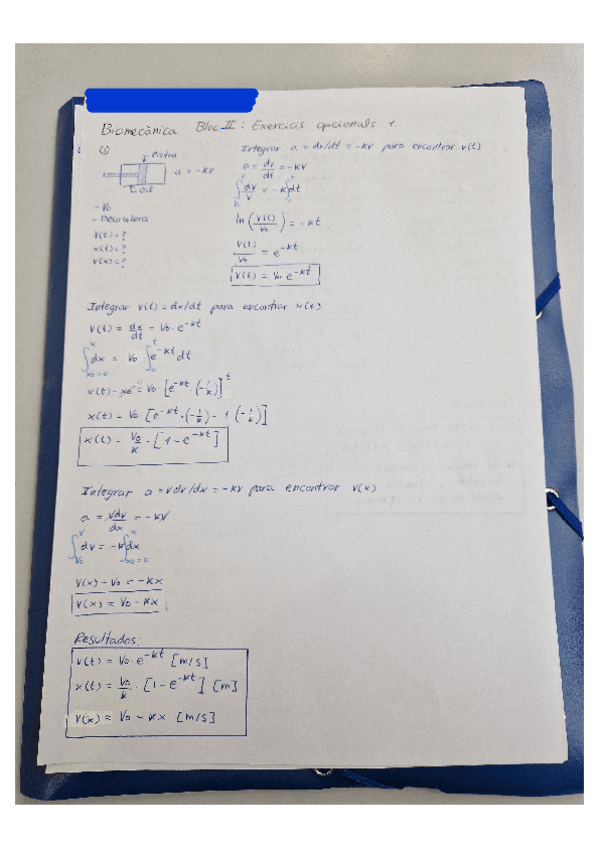 Biomecànica Bloc II: Exercicis opcionals 1
①
Piston
a = -kv
- V₀
- Desaccelera
v(t) = ?
x(t) = ?
v(x) = ?
Integrar a = dv/dt = -kv para encontrar v(t)
a = dv/dt = -kv
∫ᵥ₀ᵛ dv/v = -k ∫₀ᵗ dt
ln (v(t)/v₀) = -kt
v(t)/v₀ = e^-kt
v(t) = v₀ · e^-kt
Integrar v(t) = dx/dt para encontrar x(t)
v(t) = dx/dt = v₀ · e^-kt
∫ₓ₀₌₀ˣ dx = v₀ ∫₀ᵗ e^-kt dt
x(t) - x₀ = v₀ · [e^-kt · (-1/k)]ᵗ
x(t) = v₀ · [e^-kt · (-1/k) - 1 (-1/k)]
x(t) = v₀/k · [1 - e^-kt]
Integrar a = vdv/dx = -kv para encontrar v(x)
a = vdv/dx = -kv
∫ᵥ₀ᵛ dv = -k ∫ₓ₀₌₀ˣ dx
v(x) - v₀ = -kx
v(x) = v₀ - kx
Resultados:
v(t) = v₀ · e^-kt [m/s]
x(t) = v₀/k · [1 - e^-kt] [m]
v(x) = v₀ - kx [m/s]